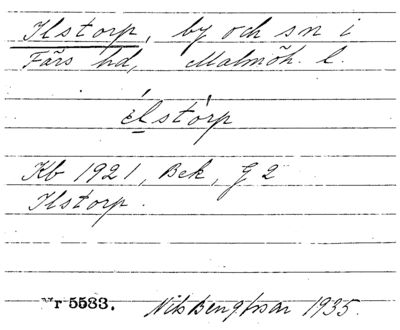 Ilstorp, by och sn i
Färs hd, Malmöh. l.
ìlstò́rp
Kb 1921, Bek, G 2
Ilstorp.
Nr 5583. Nils Bengtsson 1935.